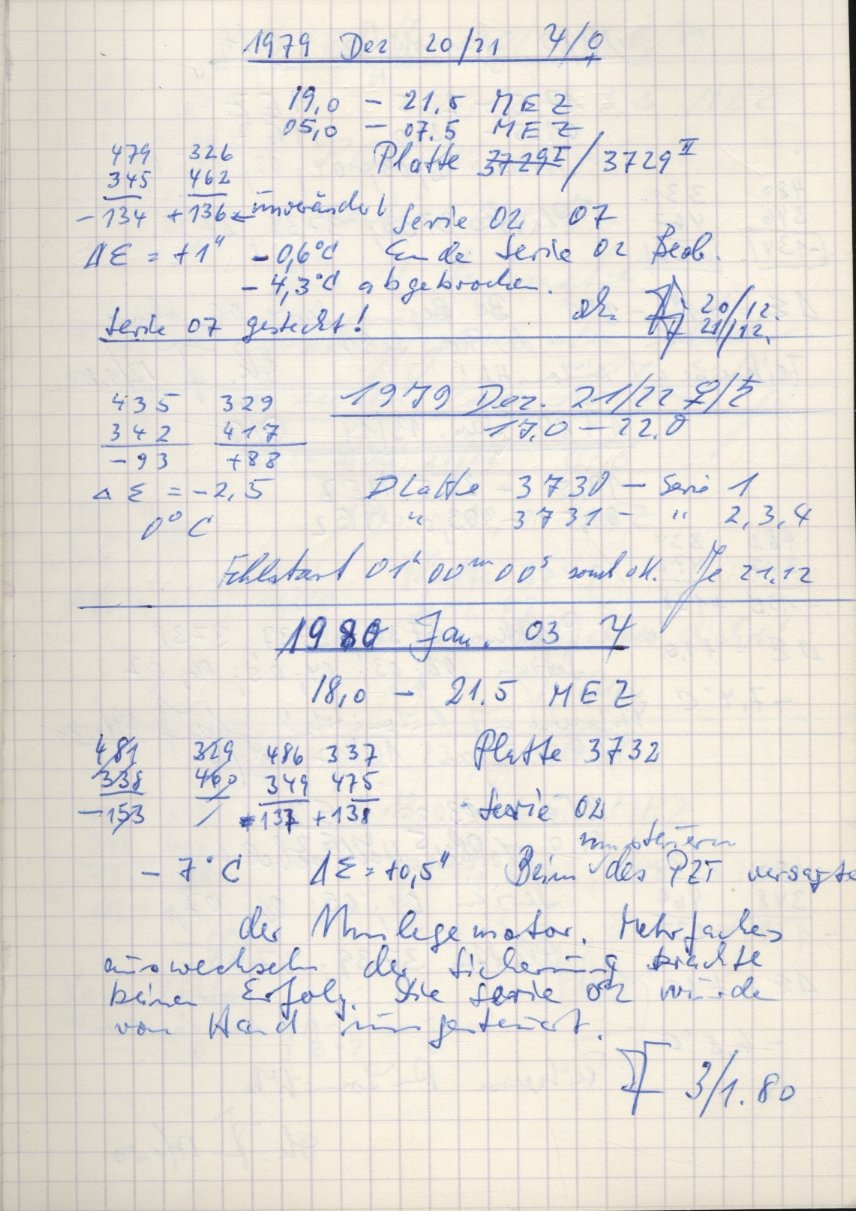 1979 Dez 20/21 ♃/♀
19,0 – 21.5 MEZ
05,0 – 07.5 MEZ
479 326 Platte 3729 I / 3729 II
345 462
-134 +136 ← unverändert Serie 02 07
ΔE = +1" -0,6°C Ende Serie 02 Beob.
-4,3°C abgebrochen.
20/12.
Serie 07 gestockt! 21/12.
435 329 1979 Dez. 21/22 ♀/♄
342 417 17.0 – 22.0
-93 +88
ΔE = -2,5 Platte 3730 – Serie 1
0°C " 3731 – " 2,3,4
Fehlstart 01h 00m 00s sonst ok. Je 21.12
1980 Jan. 03 ♃
18,0 – 21.5 MEZ
481 329 486 337 Platte 3732
338 460 349 475
-153 137 +138 Serie 02
umsteuern
-7°C ΔE = +0,5" Beim des PZT versagte
der Umlegemotor. Mehrfaches
auswechseln der Sicherung brachte
keinen Erfolg. Die Serie 02 wurde
von Hand umgesteuert.
3/1.80